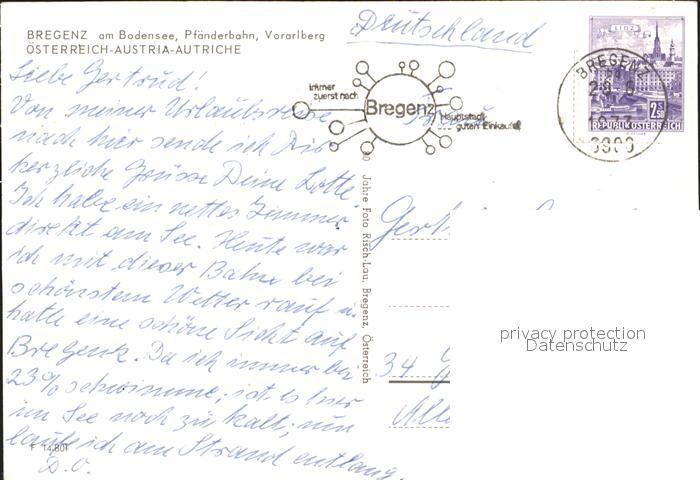 Deutschland
BREGENZ am Bodensee, Pfänderbahn, Vorarlberg
ÖSTERREICH-AUSTRIA-AUTRICHE
Liebe Gertrud!
Von meiner Urlaubsreise
nach hier sende ich Dir
herzliche Grüsse Deine Lotte
Ich habe ein nettes Zimmer
direkt am See. Heute war
ich mit dieser Bahn bei
schönstem Wetter rauf u.
hatte eine schöne Sicht auf
Bregenz. Da ich immer bei
23% schwimme, ist es hier
im See noch zu kalt, nun
laufe ich am Strand entlang.
D. O.
F 14.801
immer
zuerst nach
Bregenz
Hauptstadt
guten Einkaufs
LINZ
2.50
REPUBLIK ÖSTERREICH
BREGENZ
6900
Jahre Foto Risch-Lau, Bregenz, Österreich
Gert
34
privacy protection
Datenschutz